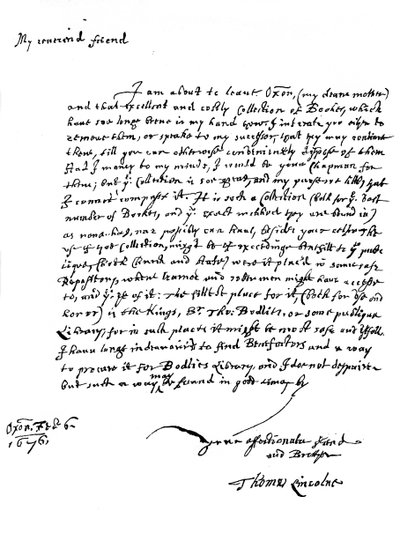 My reverend friend
I am about to leave Oxon, (my deare mother)
and that excellent and costly Collection of Bookes, which
have soe longe beene in my hand now, I intreate you either to
remove them, or speake to my successor, that they may continue
there, till you can otherwise conveniently dispose of them
Had I money to my minde, I would be your Chapman for
them; but yr Collection is soe great, and my purse soe little, that
I cannot compasse it. It is such a Collection (both for ye vast
number of Bookes, and ye exact method they are bound in)
as none has, nor possibly can have, beside your
use of that Collection, might be of exceedinge benefitt to ye publique
(both Church and State) were it plac'd in some safe
Repository, where learned and sober men might have accesse
to, and ye use of it: The fittest place for it, (both for use and
honor) is the Kings, Sr Tho: Bodlies, or some publique
Library, for in such places it might be most safe and usefull.
I have longe indeavour'd to find Benefactors and a way
to procure it for Bodlies Library, and I doe not despaire
but such a way may be found in good time by
Oxon, Feb: 6
1676.
your affectionate frend
and Brother
Thomas Lincolne